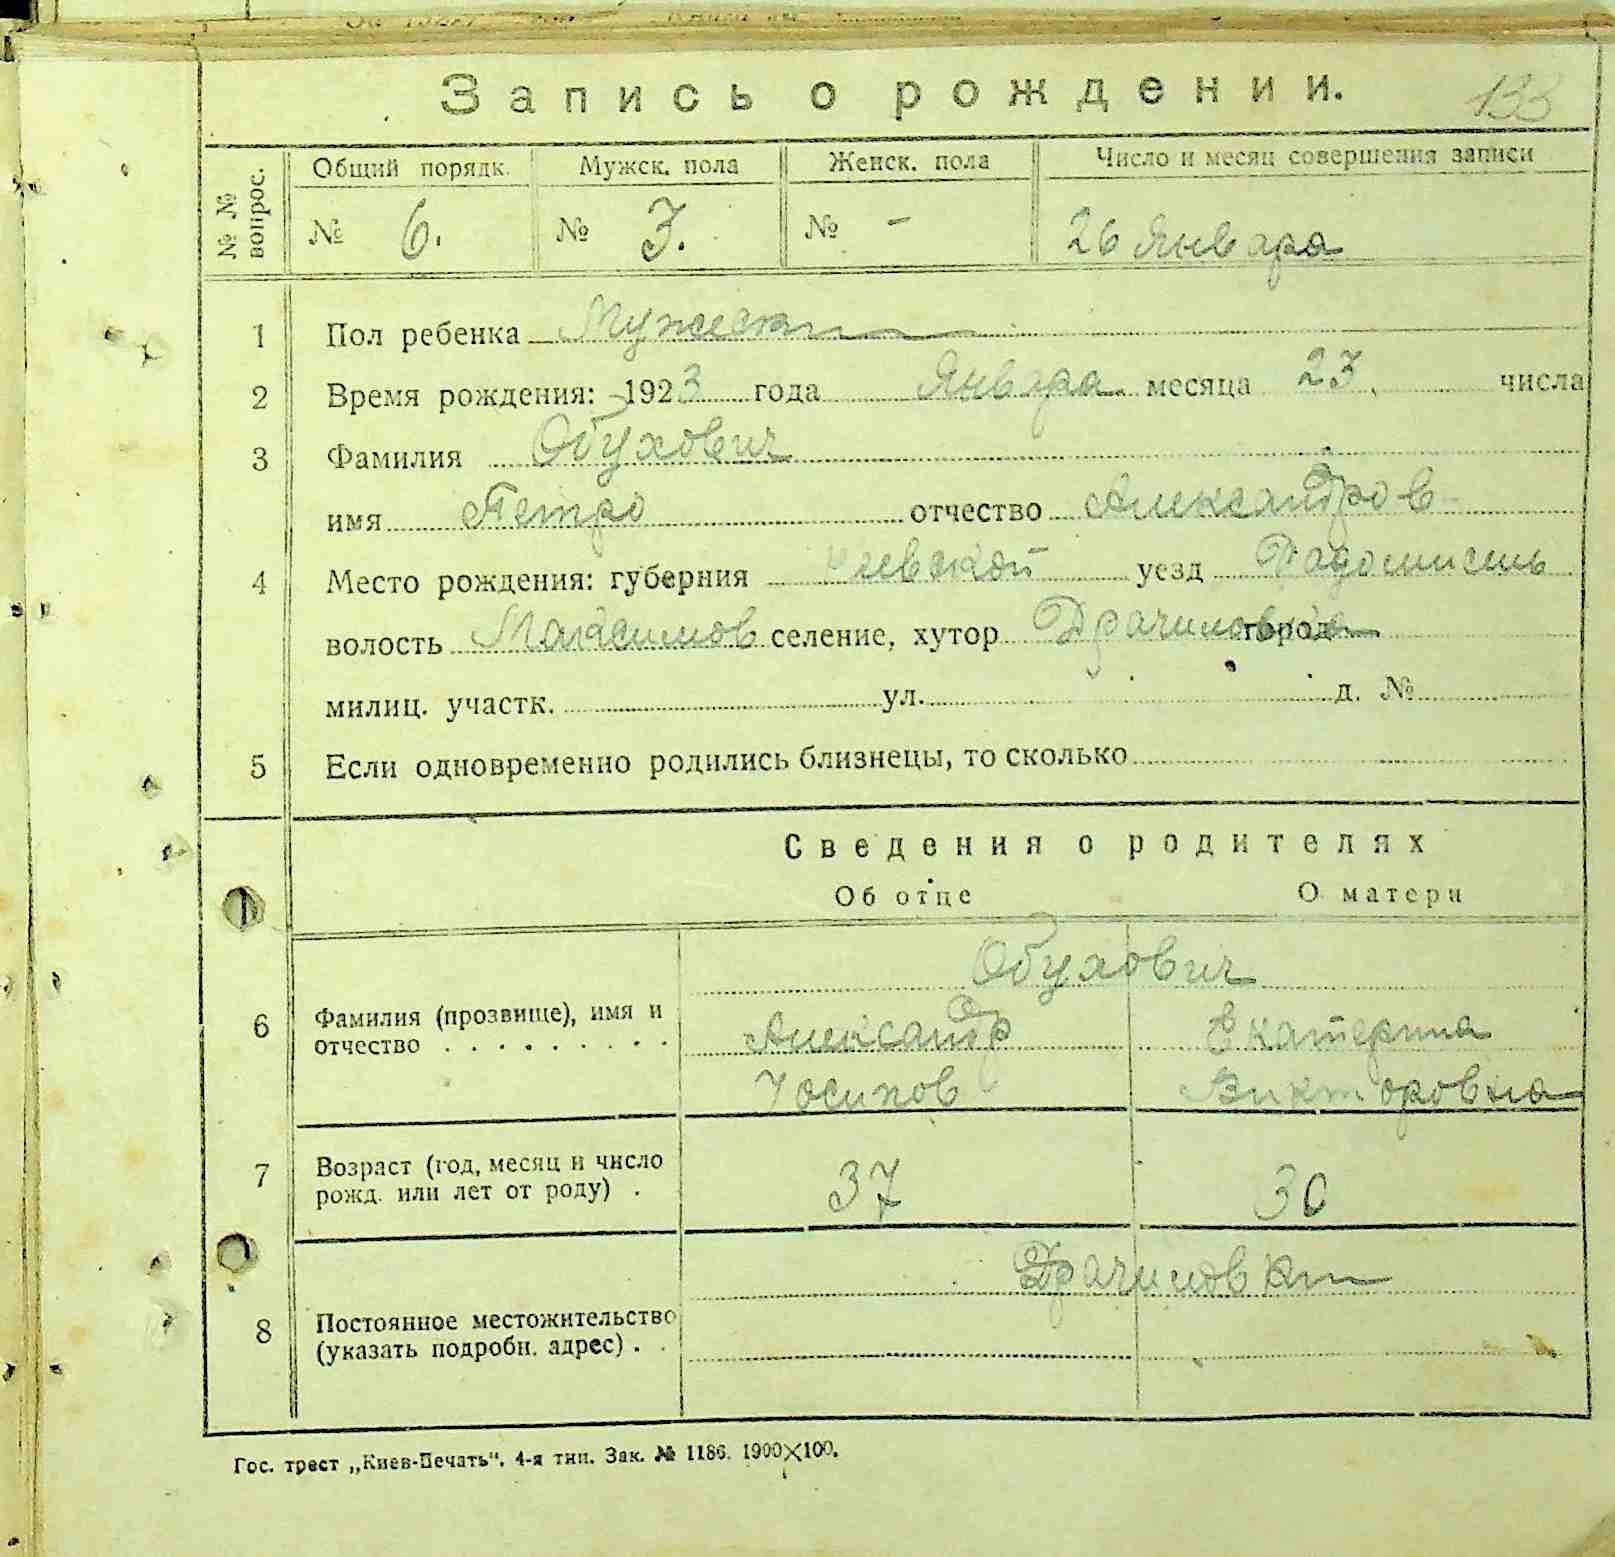 Запись о рождении. 133
№ № вопрос.
Общий порядк. Мужск. пола Женск. пола Число и месяц совершения записи
№ 6. № 3. № - 26 Января
1 Пол ребенка Мужеск
2 Время рождения: 1923 года Января месяца 23 числа
3 Фамилия Обухович
имя Петро отчество Александров
4 Место рождения: губерния Киевской уезд Радомисль
волость Максимов селение, хутор город
милиц. участк. ул. д. №
5 Если одновременно родились близнецы, то сколько
Сведения о родителях
Об отце О матери
Обухович
6 Фамилия (прозвище), имя и отчество . . . . . . . . . Александр Екатерина
Иосипов Викторовна
7 Возраст (год, месяц и число рожд. или лет от роду) . 37 30
8 Постоянное местожительство (указать подробн. адрес) . .
Гос. трест „Киев-Печать". 4-я тип. Зак. № 1186. 1900×100.